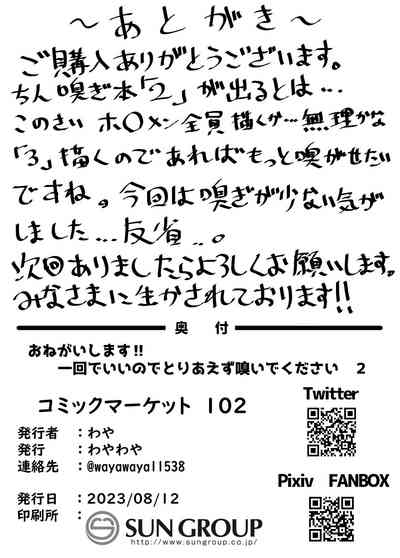 ～あとがき～
ご購入ありがとうございます。
ちん嗅ぎ本「2」が出るとは…
このさい ホ〇メン全員描くか…無理かな
「3」描くのであればもっと嗅がせたい
ですね。今回は嗅ぎが少ない気が
しました…反省…。
次回ありましたらよろしくお願いします。
みなさまに生かされております!!
奥 付
おねがいします!!
一回でいいのでとりあえず嗅いでください 2
コミックマーケット 102
発行者 ：わや
発行 ：わやわや
連絡先 ：@wayawaya11538
発行日 ：2023/08/12
印刷所 ：SUN GROUP
http://www.sungroup.co.jp/
Twitter
Pixiv FANBOX